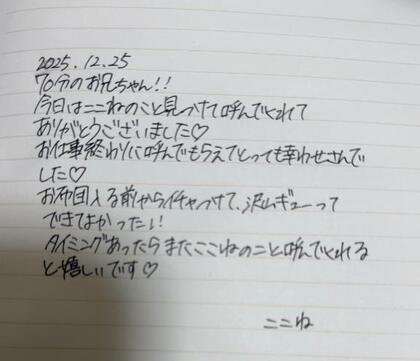 2025.12.25
70分のお兄ちゃん!!
今日はここねのこと見つけて呼んでくれて
ありがとうございました♡
お仕事終わりに呼んでもらえてとっても幸わせさんで
した♡
お布団入る前からイチャつけて、沢山ギューって
できてよかった!!
タイミングあったらまたここねのこと呼んでくれる
と嬉しいです♡
ここね